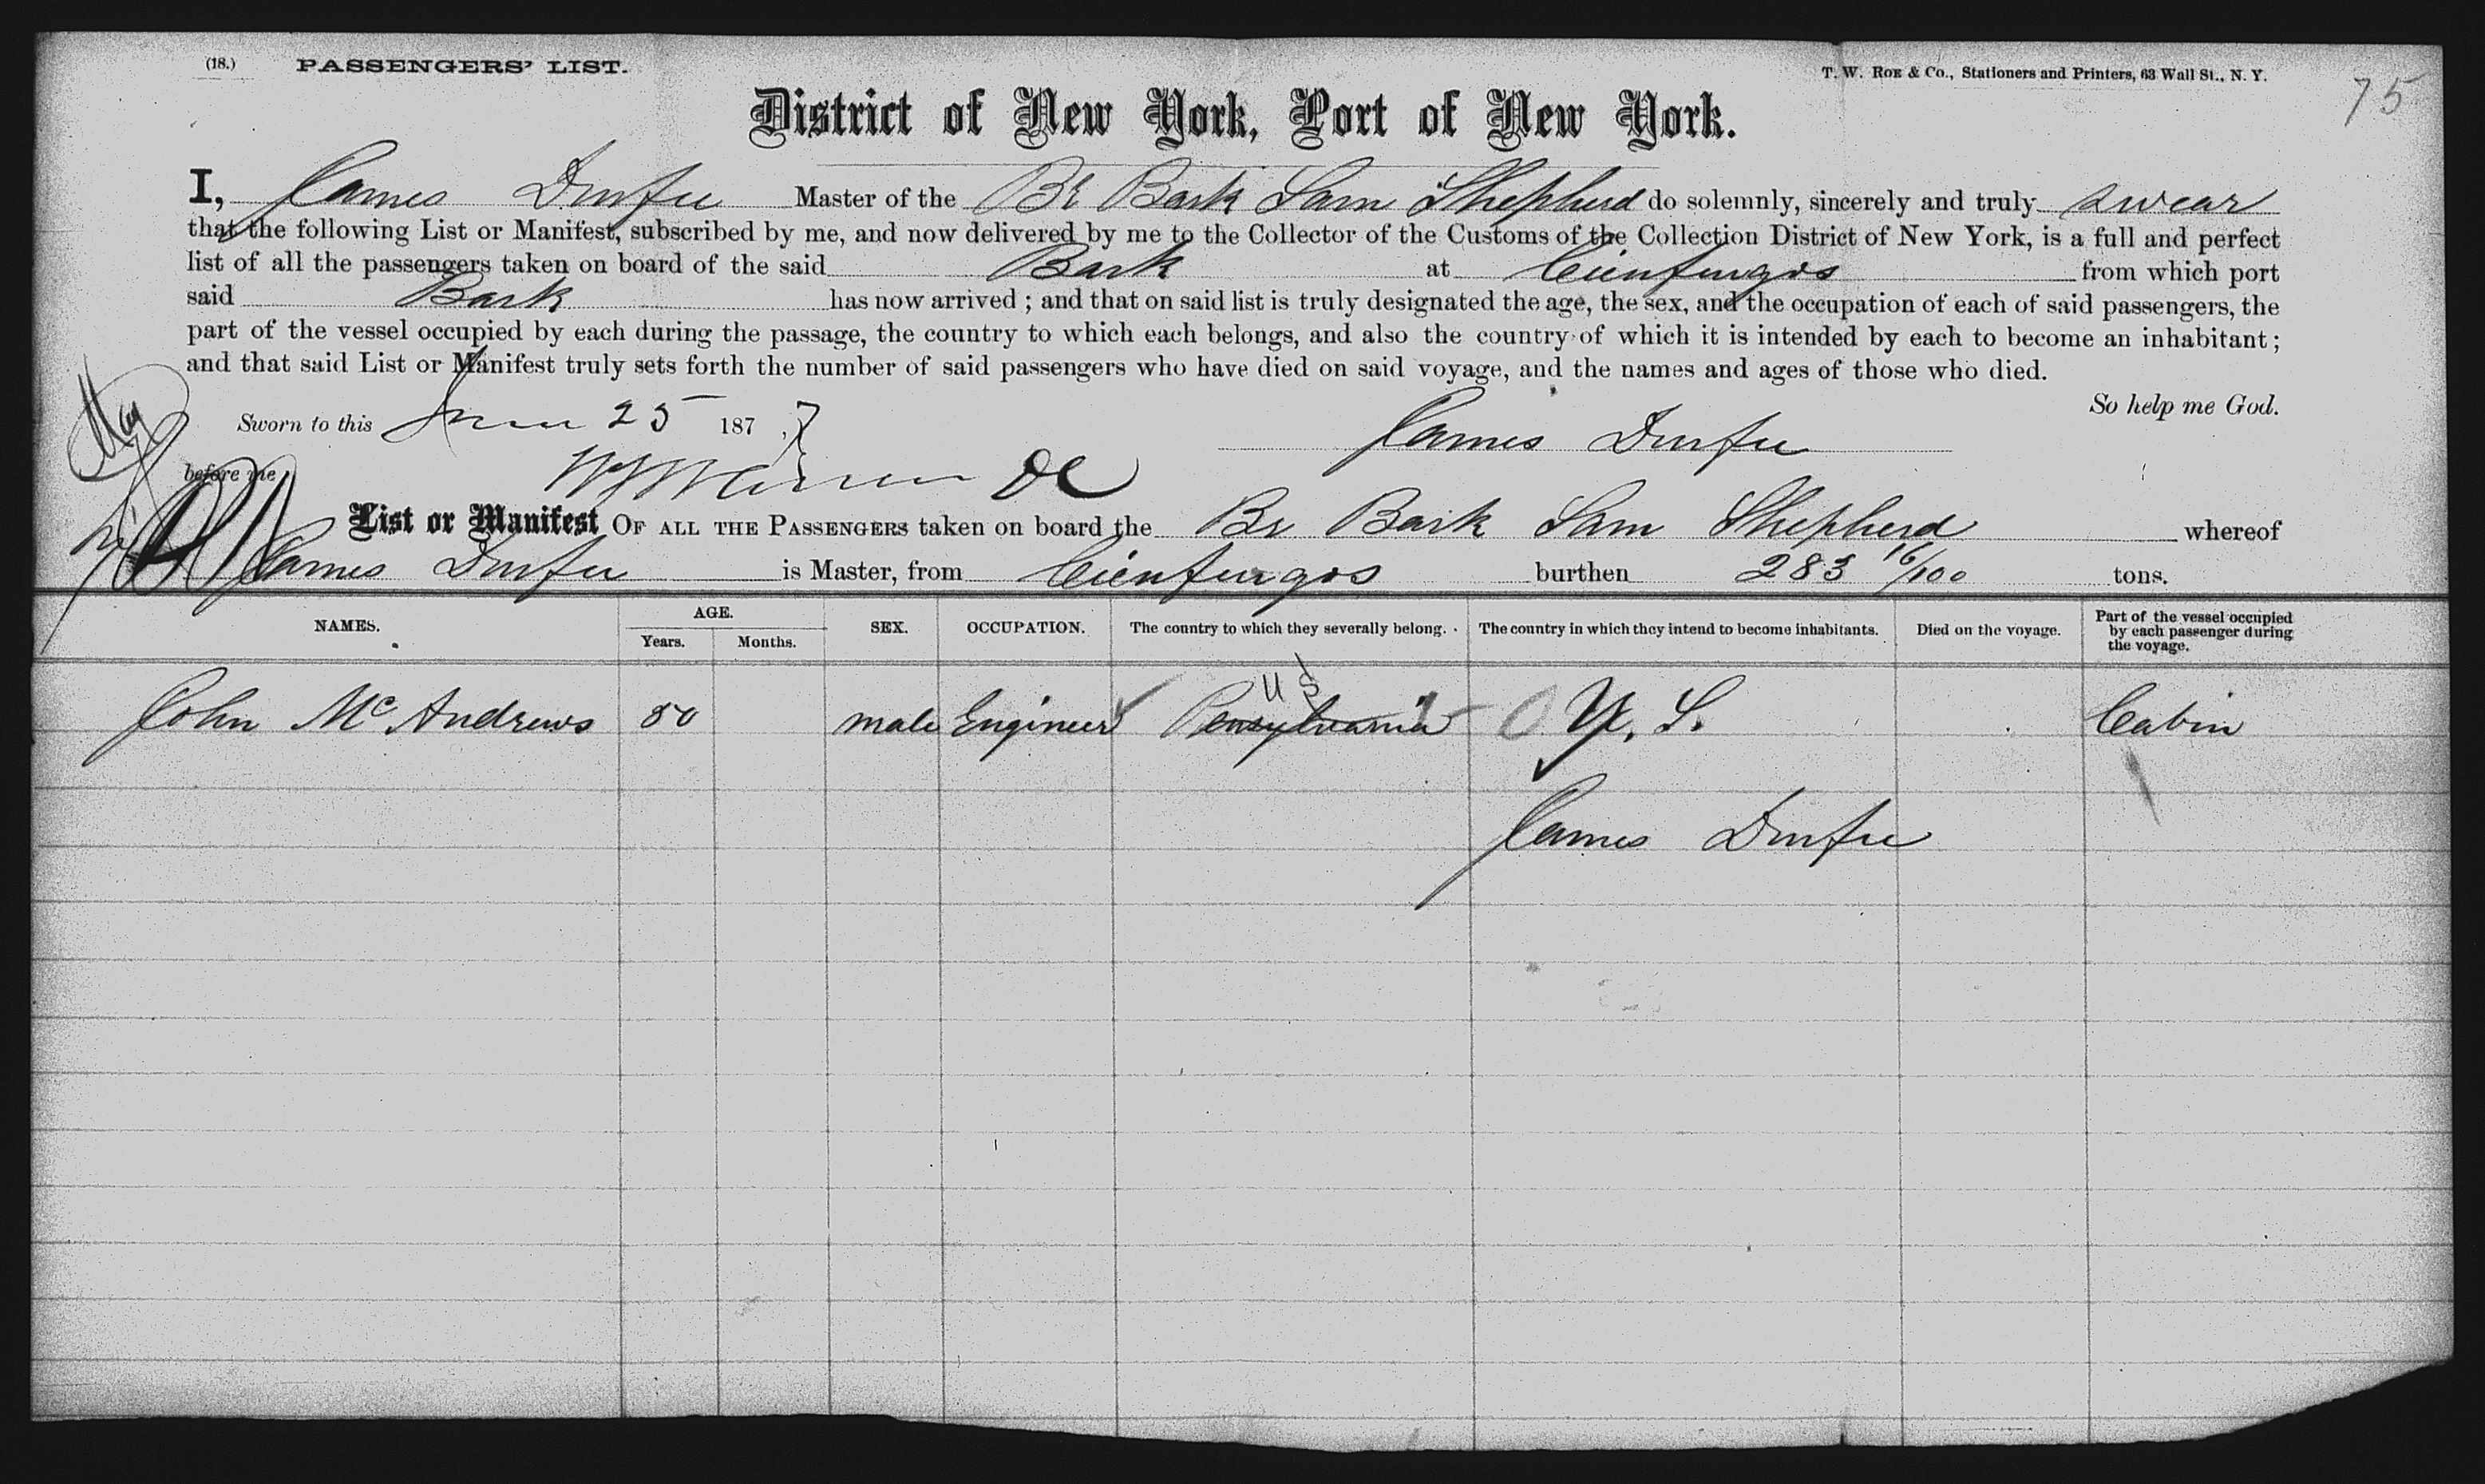 (18.) PASSENGERS' LIST.
T. W. ROE & CO., Stationers and Printers, 63 Wall St., N. Y.
75
District of New York, Port of New York.
I, James Durfee Master of the Br Bark Sam Shepherd do solemnly, sincerely and truly swear
that the following List or Manifest, subscribed by me, and now delivered by me to the Collector of the Customs of the Collection District of New York, is a full and perfect
list of all the passengers taken on board of the said Bark at Cienfuegos from which port
said Bark has now arrived; and that on said list is truly designated the age, the sex, and the occupation of each of said passengers, the
part of the vessel occupied by each during the passage, the country to which each belongs, and also the country of which it is intended by each to become an inhabitant;
and that said List or Manifest truly sets forth the number of said passengers who have died on said voyage, and the names and ages of those who died.
So help me God.
May
Sworn to this June 25 1877
James Durfee
before me
List or Manifest OF ALL THE PASSENGERS taken on board the Br Bark Sam Shepherd whereof
James Durfee is Master, from Cienfuegos burthen 283 16/100 tons.
NAMES. AGE. Years. Months. SEX. OCCUPATION. The country to which they severally belong. The country in which they intend to become inhabitants. Died on the voyage. Part of the vessel occupied by each passenger during the voyage.
U S
John McAndrews 50 male Engineer Pensylvania S. Cabin
James Durfee